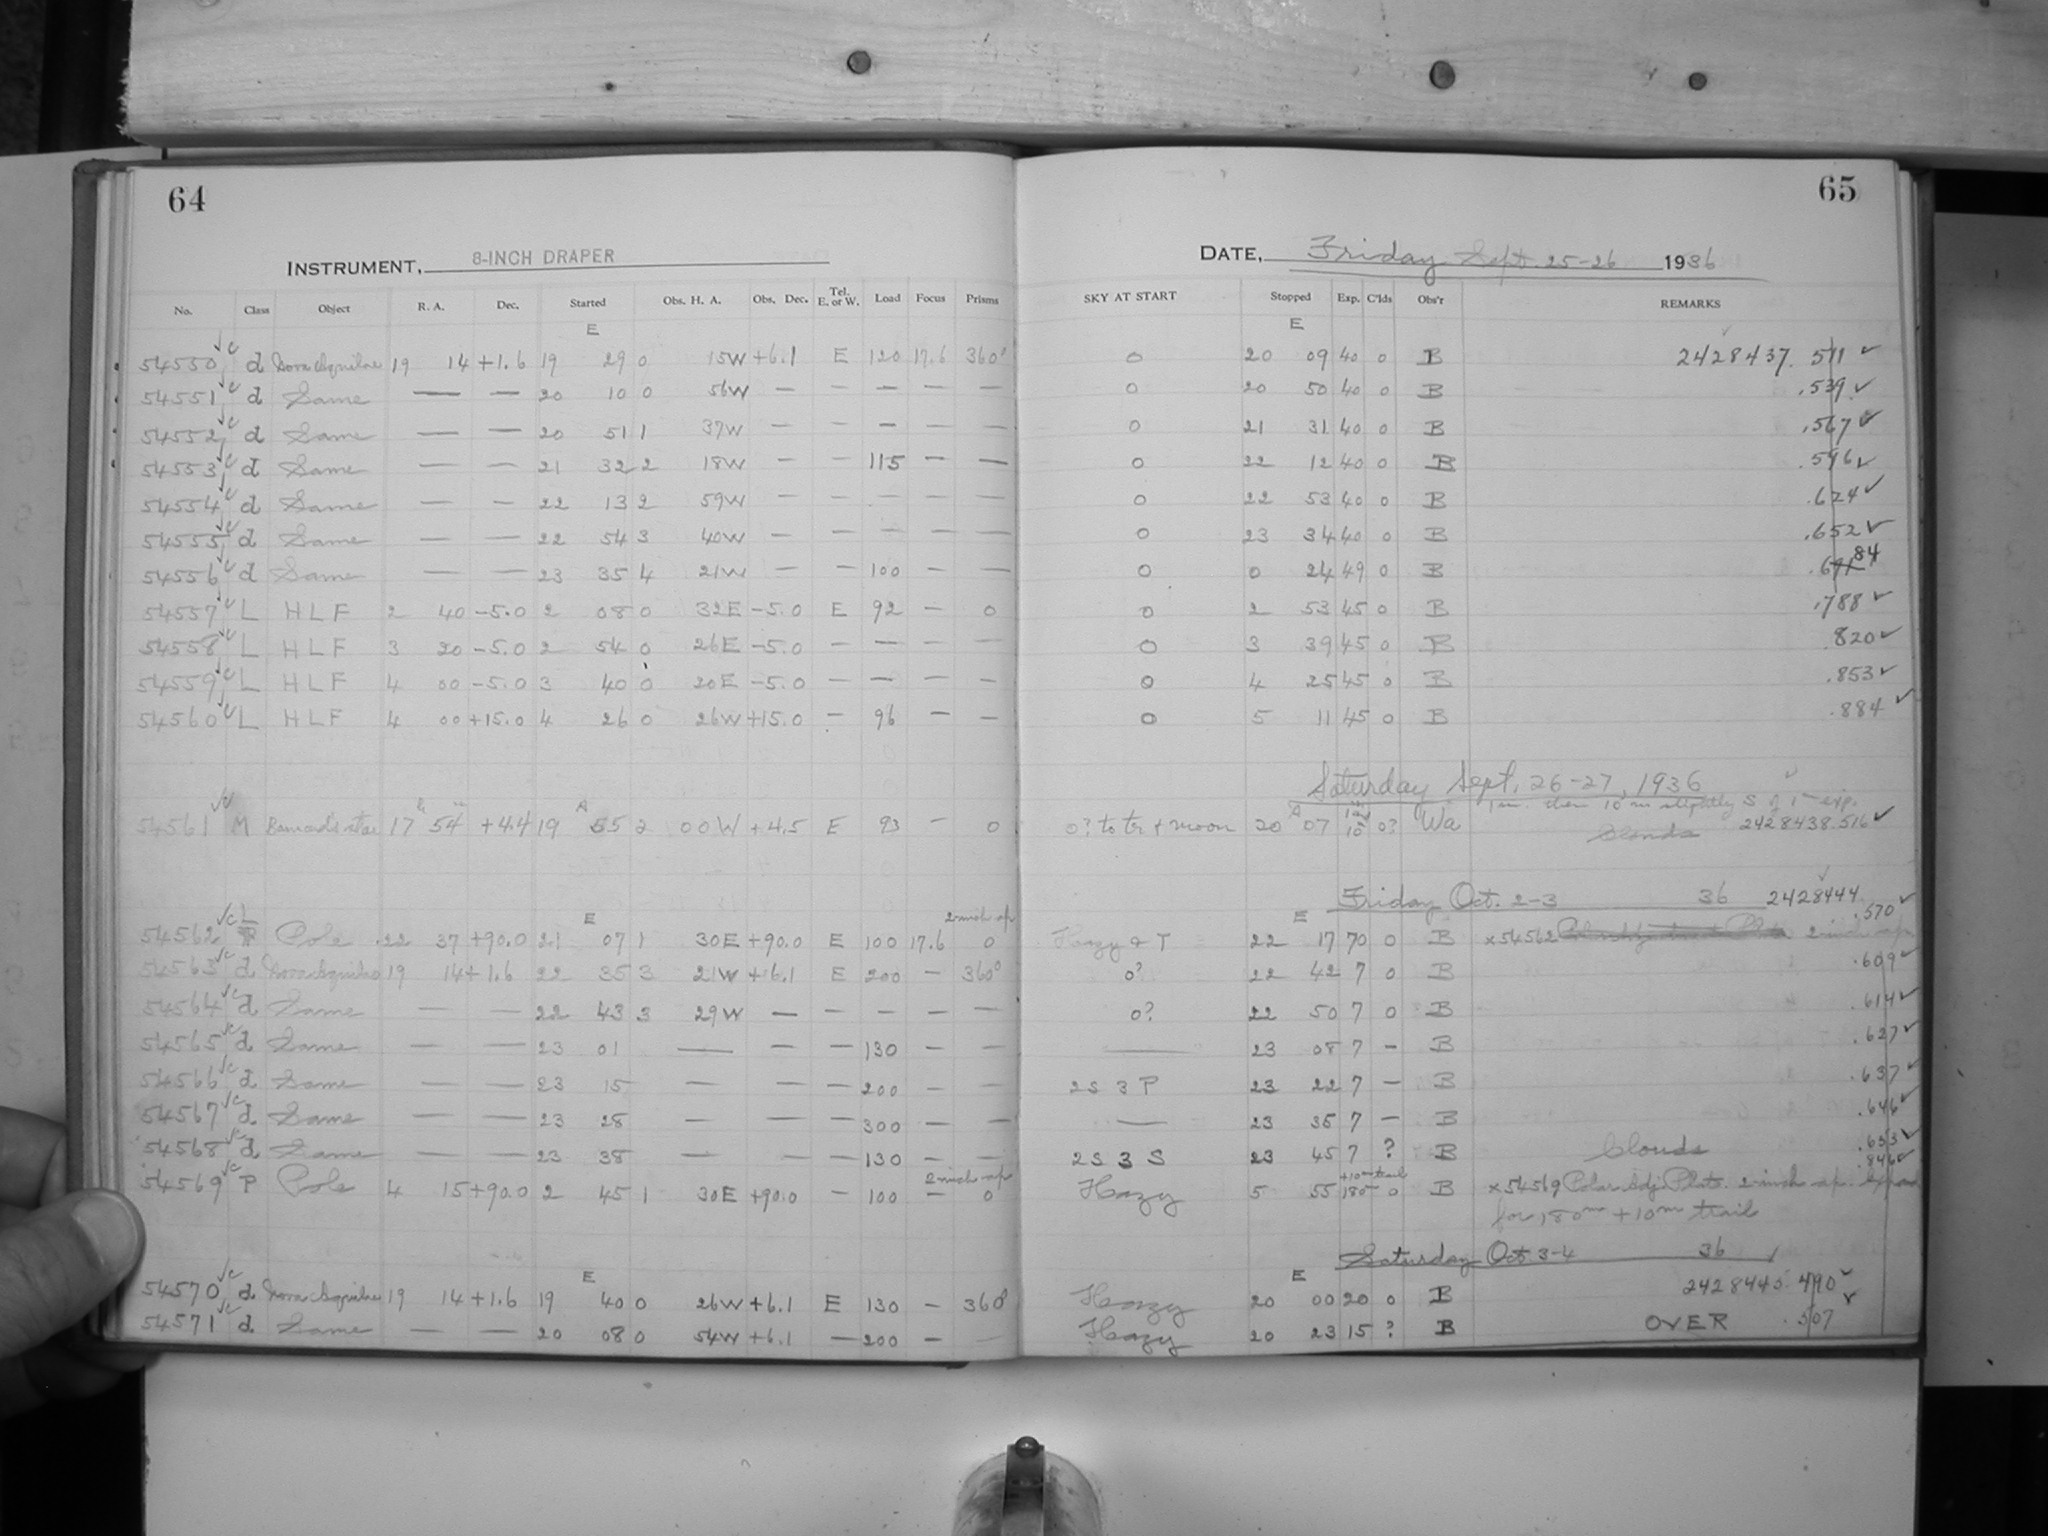 64
INSTRUMENT, 8-INCH DRAPER
No. Class Object R. A. Dec. Started Obs. H. A. Obs. Dec. Tel. E. or W. Load Focus Prisms
E
54550 d Nova Aquilae 19 14 +1.6 19 29 0 15W +6.1 E 120 17.6 360°
54551 d Same — — 20 10 0 56W — — — — —
54552 d Same — — 20 51 1 37W — — — — —
54553 d Same — — 21 32 2 18W — — 115 — —
54554 d Same — — 22 13 2 59W — — — — —
54555 d Same — — 22 54 3 40W — — — — —
54556 d Same — — 23 35 4 21W — — 100 — —
54557 L HLF 2 40 -5.0 2 08 0 32E -5.0 E 92 — 0
54558 L HLF 3 20 -5.0 2 54 0 26E -5.0 — — — —
54559 L HLF 4 00 -5.0 3 40 0 20E -5.0 — — — —
54560 L HLF 4 00 +15.0 4 26 0 26W +15.0 — 96 — —
A
54561 M Barnards star 17 54 +4.4 19 55 2 00W +4.5 E 93 — 0
E 2 inch ap
54562 Pole 22 37 +90.0 21 07 1 30E +90.0 E 100 17.6 0
54563 d Nova Aquilae 19 14 +1.6 22 35 3 21W +6.1 E 200 — 360°
54564 d Same — — 22 43 3 29W — — — — —
54565 d Same — — 23 01 — — — 130 — —
54566 d Same — — 23 15 — — — 200 — —
54567 d Same — — 23 28 — — — 300 — —
54568 d Same — — 23 38 — — — 130 — —
2 inch ap
54569 P Pole 4 15 +90.0 2 45 1 30E +90.0 — 100 — 0
E
54570 d Nova Aquilae 19 14 +1.6 19 40 0 26W +6.1 E 130 — 360°
54571 d Same — — 20 08 0 54W +6.1 — 200 — —
65
DATE, Friday Sept. 25-26 1936
SKY AT START Stopped Exp. C'lds Obs'r REMARKS
E
0 20 09 40 0 B 2428437.511
0 20 50 40 0 B .539
0 21 31 40 0 B .567
0 22 12 40 0 B .596
0 22 53 40 0 B .624
0 23 34 40 0 B .652
84
0 0 24 49 0 B
0 2 53 45 0 B .788
0 3 39 45 0 B .820
0 4 25 45 0 B .853
0 5 11 45 0 B .884
Saturday Sept. 26-27, 1936
1 m. then 10 m slightly S of 1m exp.
0? to tr + moon 20 07 10 0? Wa Clouds 2428438.516
Friday Oct. 2-3 36 2428444
E .570
Hazy & T 22 17 70 0 B x54562 2 inch ap
0? 22 42 7 0 B .609
0? 22 50 7 0 B .614
— 23 08 7 — B .627
2 S 3 P 23 22 7 — B .637
— 23 35 7 — B .646
2 S 3 S 23 45 7 ? B Clouds .653
+10m trail .846
Hazy 5 55 180m 0 B x54569 Polar Adj Plate. 2 inch ap.
for 180m + 10m trail
Saturday Oct 3-4 36
E
Hazy 20 00 20 0 B 2428445.490
Hazy 20 23 15 ? B OVER .507